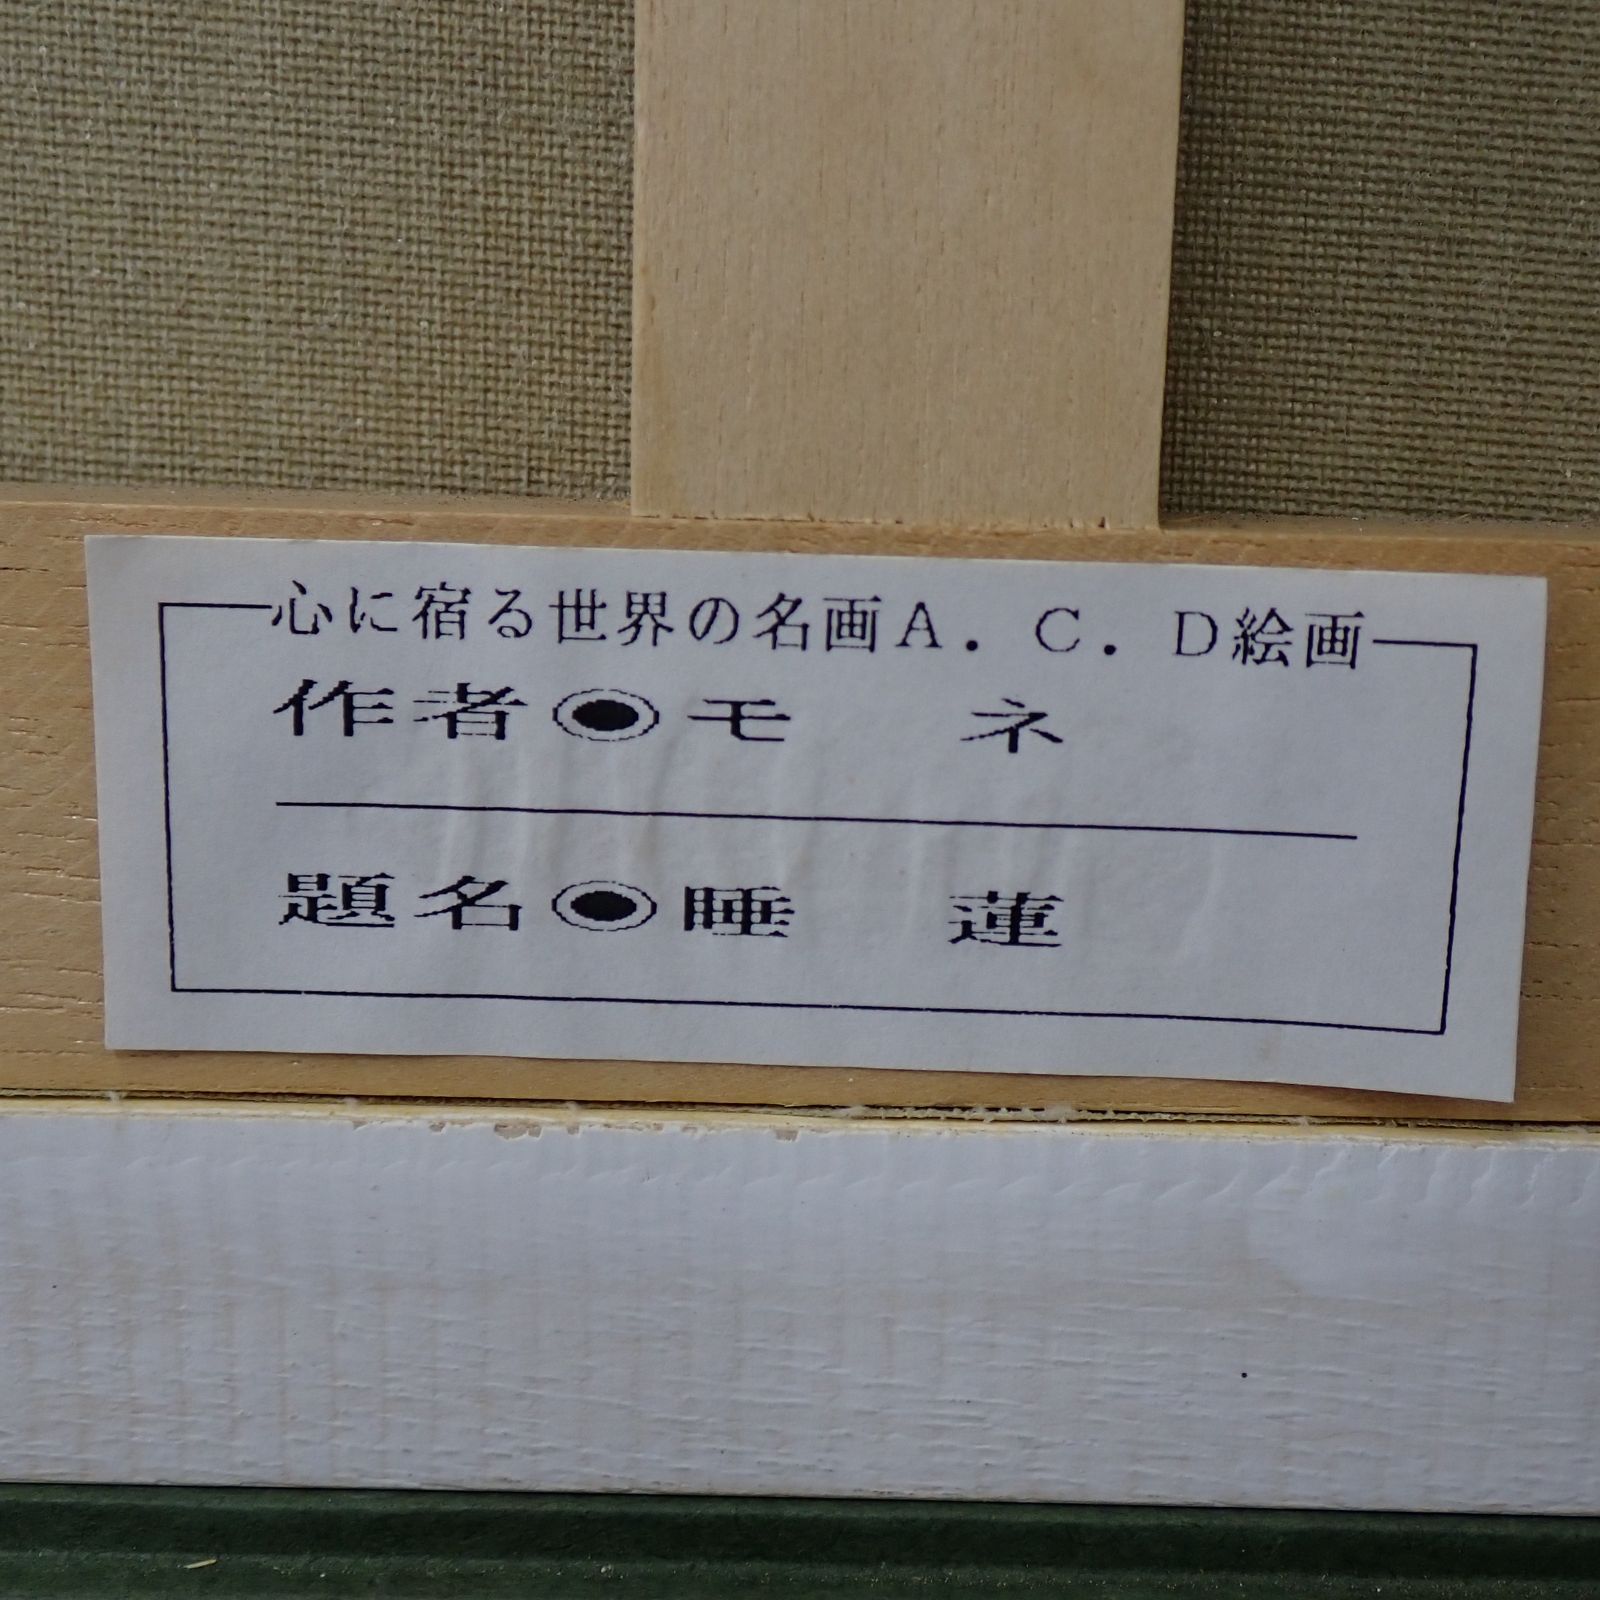 心に宿る世界の名画A．C．D絵画
作者◉モ　ネ
題名◉睡　蓮